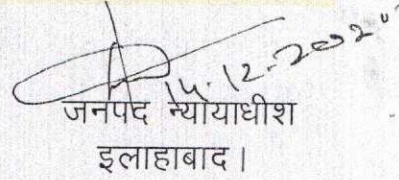 14.12.2020
जनपद न्यायाधीश
इलाहाबाद।